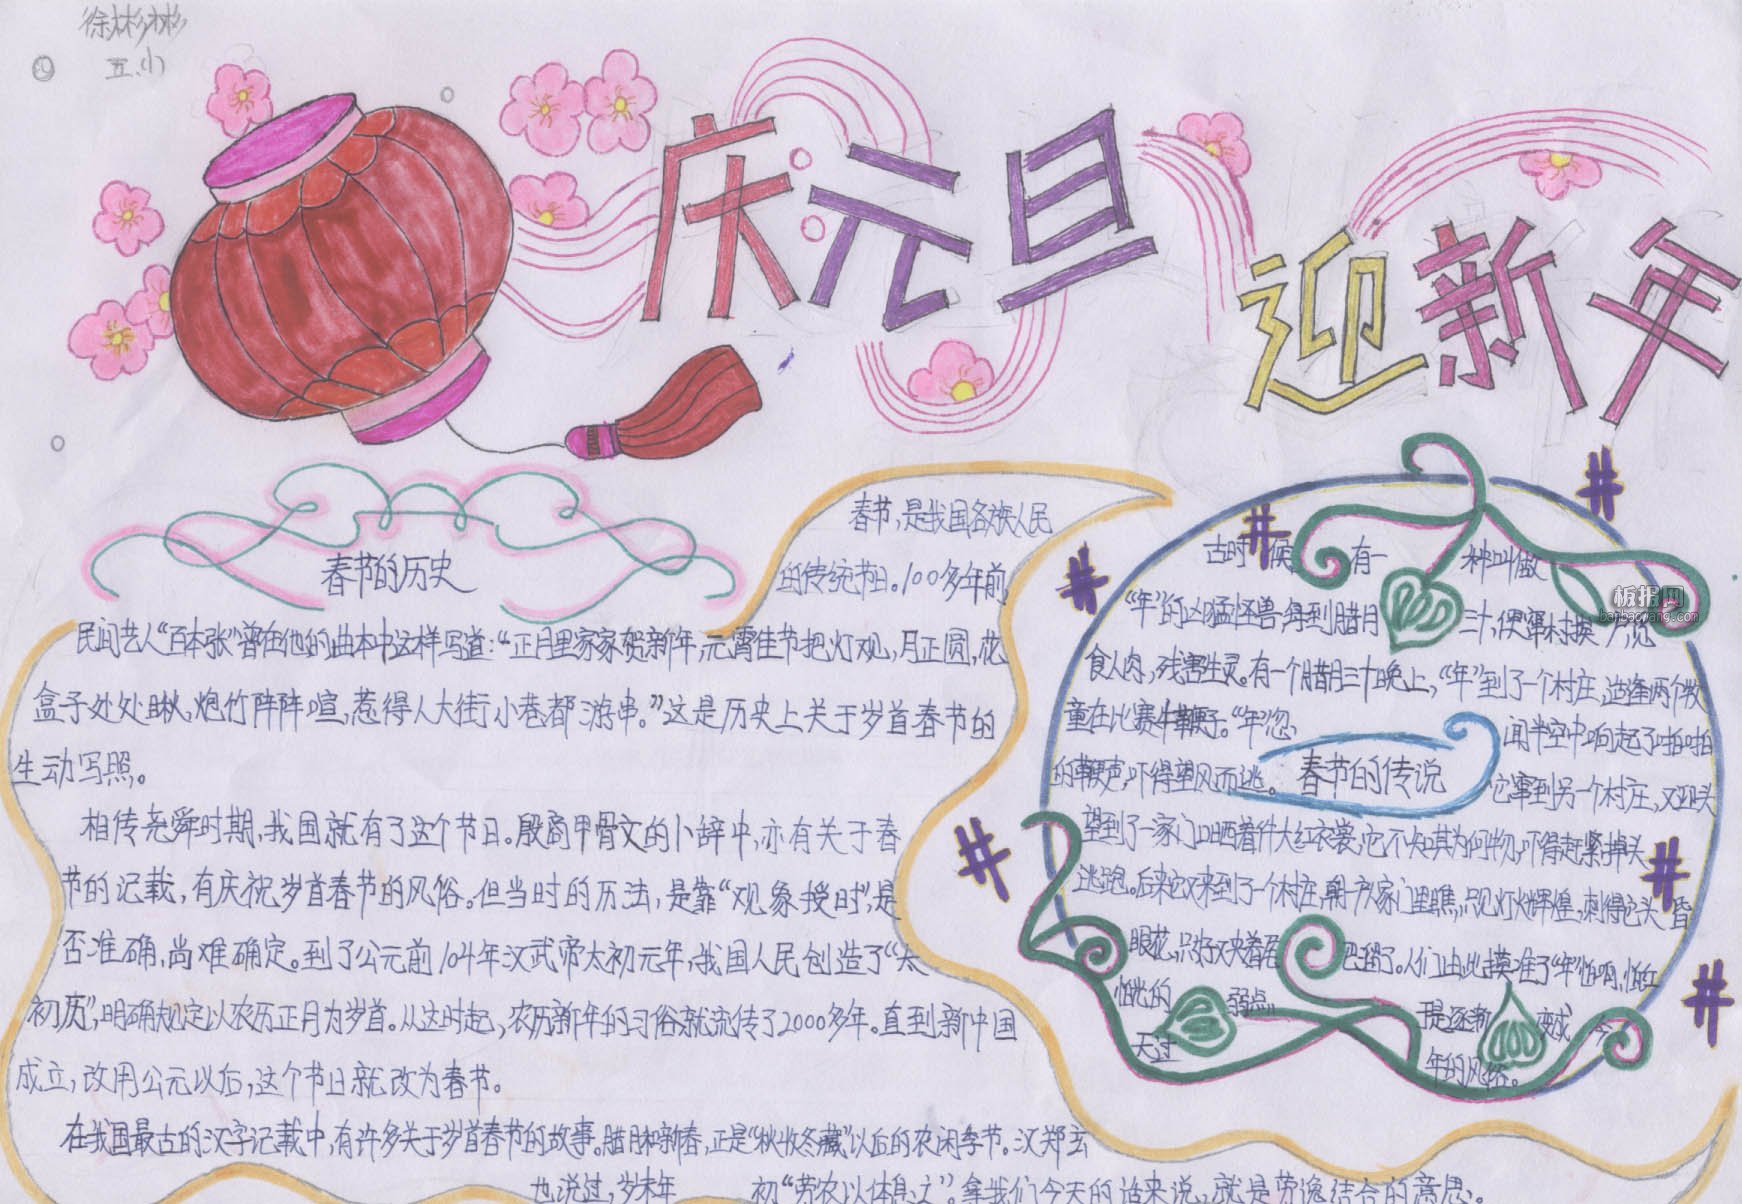 徐彬彬
五.(1)
庆元旦
迎新年
春节的历史
春节,是我国各族人民
的传统节日。100多年前
民间艺人“百本张”曾在他的曲本中这样写道:“正月里家家贺新年,元霄佳节把灯观,月正圆,花
盒子处处瞅,炮竹阵阵喧,惹得人大街小巷都游串。”这是历史上关于岁首春节的
生动写照。
相传尧舜时期,我国就有了这个节日。殷商甲骨文的卜辞中,亦有关于春
节的记载,有庆祝岁首春节的风俗。但当时的历法,是靠“观象授时”,是
否准确,尚难确定。到了公元前104年汉武帝太初元年,我国人民创造了“太
初历”,明确规定以农历正月为岁首。从这时起,农历新年的习俗就流传了2000多年。直到新中国
成立,改用公元以后,这个节日就改为春节。
在我国最古的汉字记载中,有许多关于岁首春节的故事。腊月和新春,正是“秋收冬藏”以后的农闲季节。汉郑玄
也说过,岁末年初“劳农以休息之”。拿我们今天的话来说,就是劳逸结合的意思。
古时候有一种叫做
“年”的凶猛怪兽,每到腊月三十,便窜村挨户,觅
食人肉,残害生灵。有一个腊月三十晚上,“年”到了一个村庄,适逢两个牧
童在比赛牛鞭子。“年”忽闻半空中响起了啪啪
的鞭声,吓得望风而逃。它窜到另一个村庄,又迎头
春节的传说
望到了一家门口晒着件大红衣裳,它不知其为何物,吓得赶紧掉头
逃跑。后来它又来到了一个村庄,朝一户家门里瞧,只见灯火辉煌,刺得它头昏
眼花,只好又夹着尾巴溜了。人们由此摸准了“年”怕响,怕红
怕光的弱点
于是逐渐变成今
天过年的风俗。
板报网
banbaowang.com